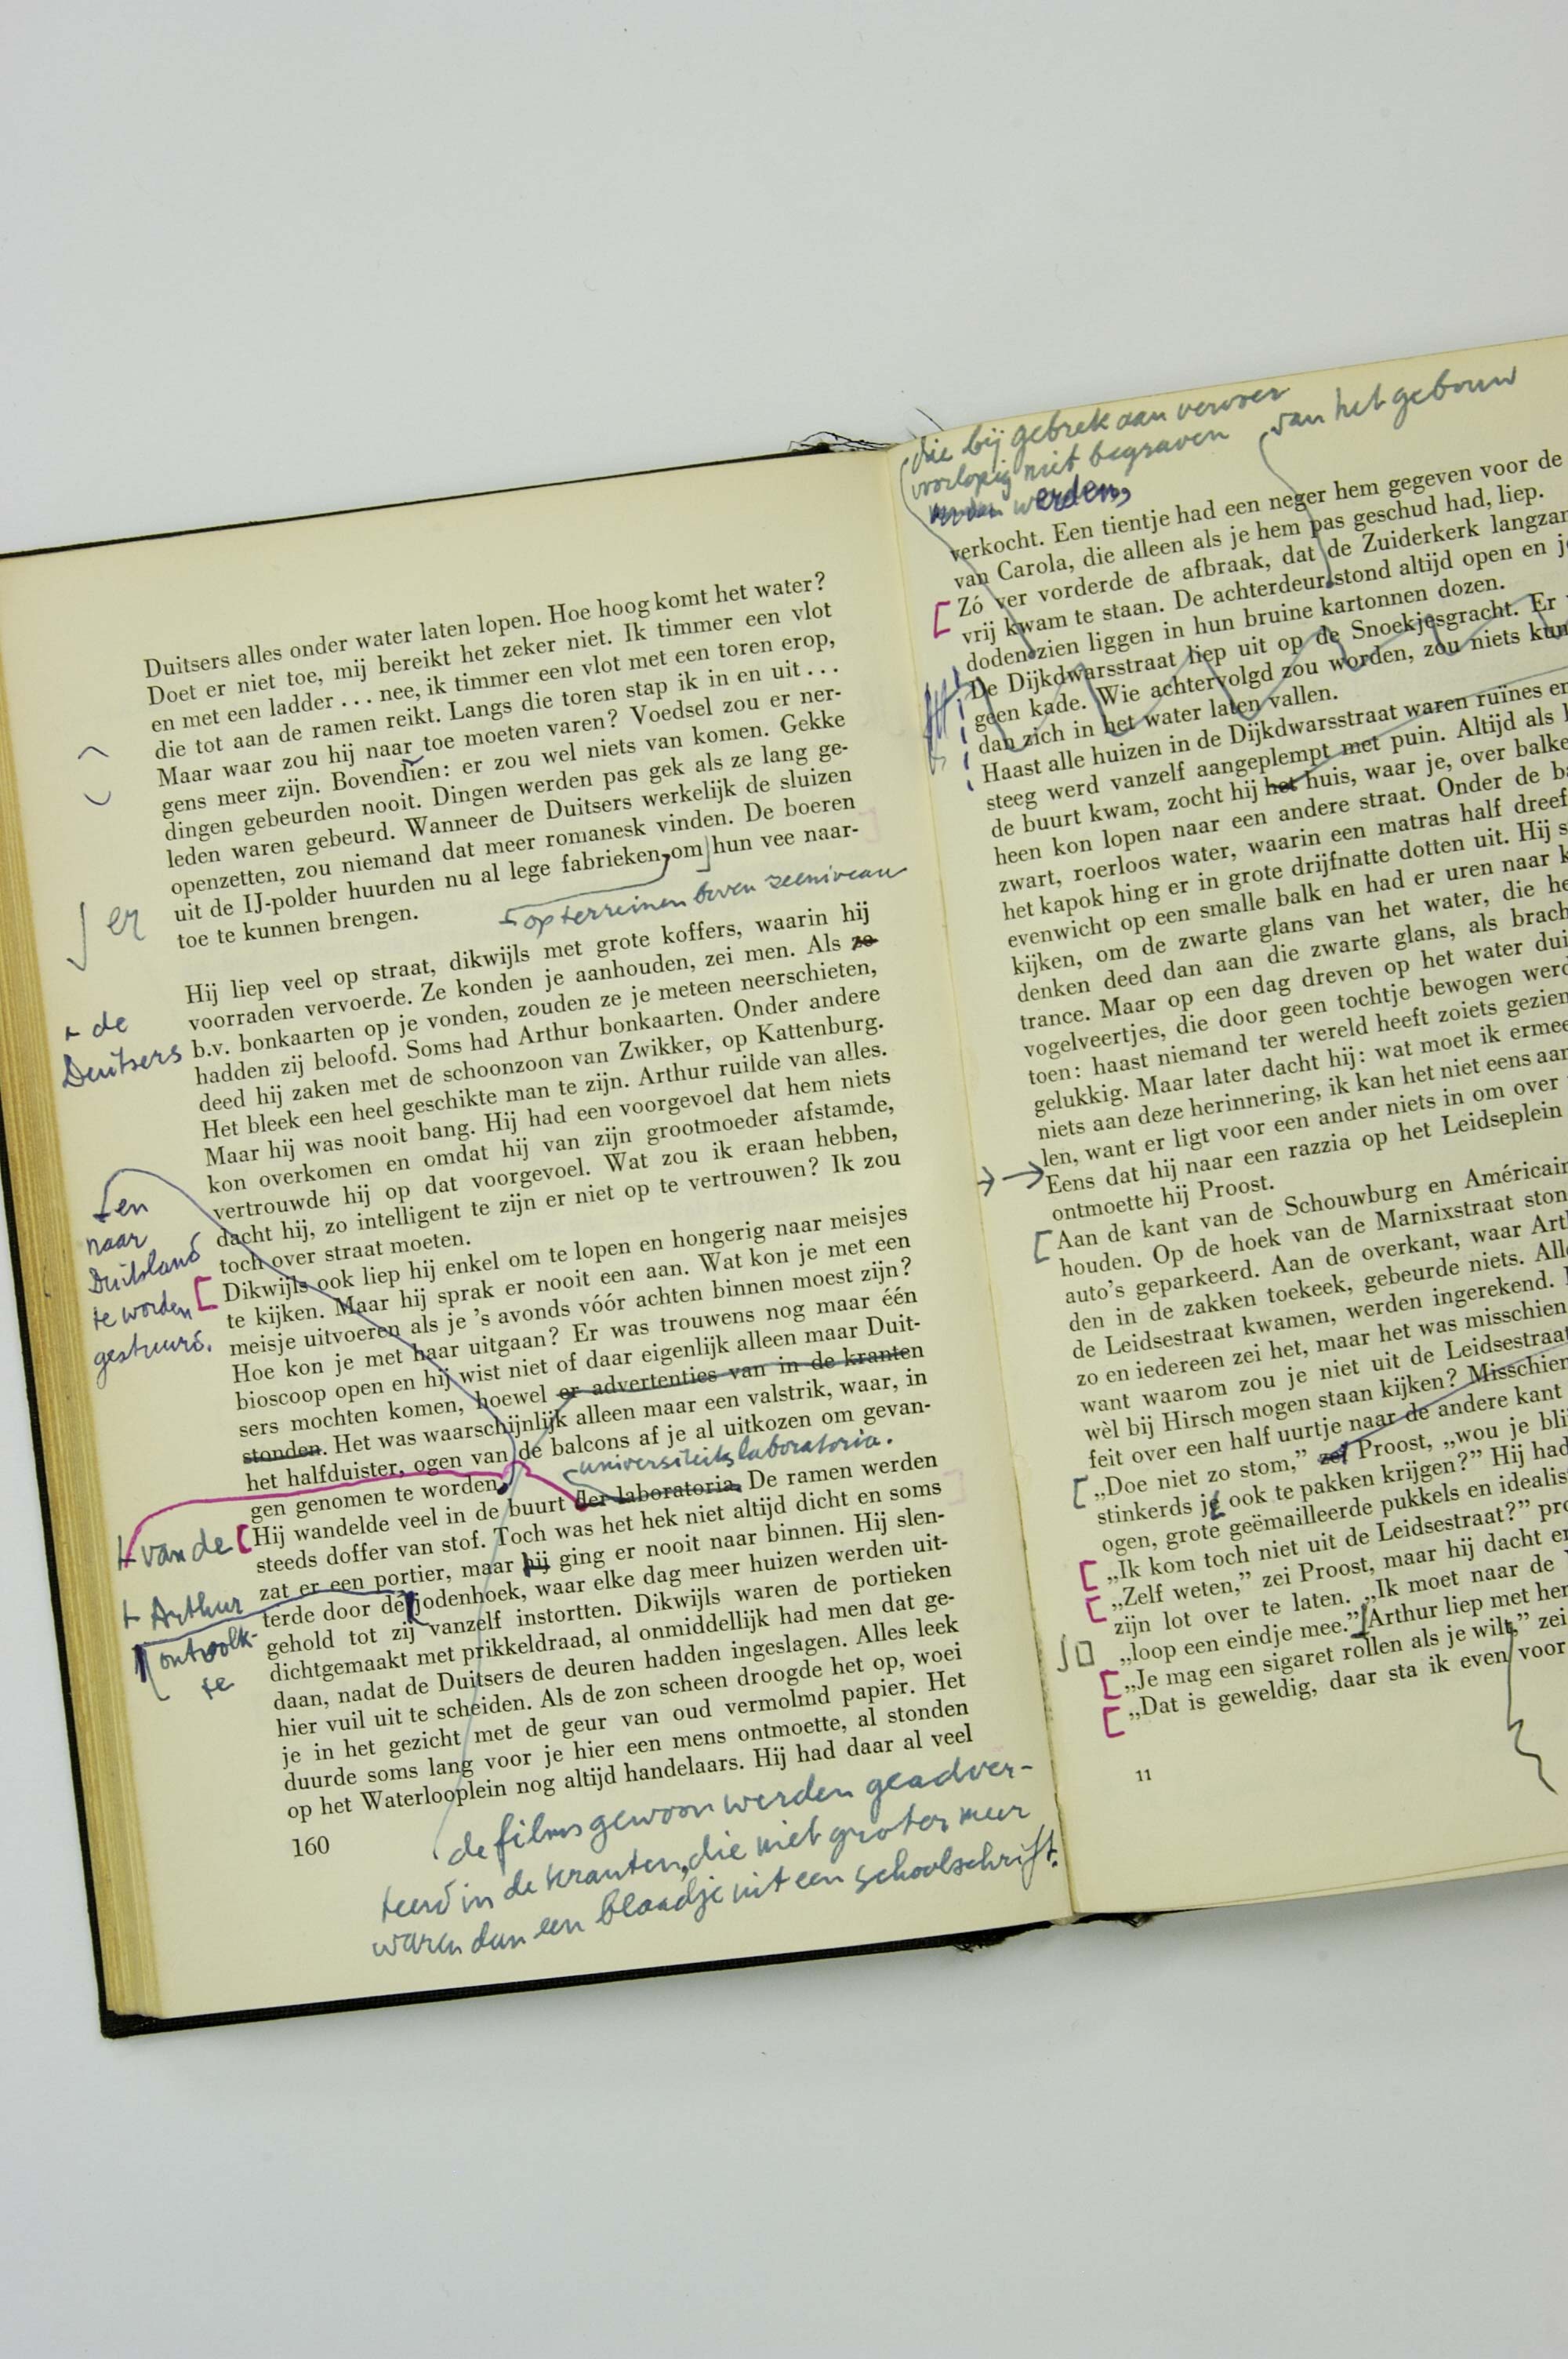 Duitsers alles onder water laten lopen. Hoe hoog komt het water?
Doet er niet toe, mij bereikt het zeker niet. Ik timmer een vlot
en met een ladder . . . nee, ik timmer een vlot met een toren erop,
die tot aan de ramen reikt. Langs die toren stap ik in en uit . . .
Maar waar zou hij naar toe moeten varen? Voedsel zou er ner-
gens meer zijn. Bovendien: er zou wel niets van komen. Gekke
dingen gebeurden nooit. Dingen werden pas gek als ze lang ge-
leden waren gebeurd. Wanneer de Duitsers werkelijk de sluizen
openzetten, zou niemand dat meer romanesk vinden. De boeren
uit de IJ-polder huurden nu al lege fabrieken, om hun vee naar-
er
toe te kunnen brengen.
op terreinen boven zeeniveau
Hij liep veel op straat, dikwijls met grote koffers, waarin hij
voorraden vervoerde. Ze konden je aanhouden, zei men. Als ze
de
Duitsers
b.v. bonkaarten op je vonden, zouden ze je meteen neerschieten,
hadden zij beloofd. Soms had Arthur bonkaarten. Onder andere
deed hij zaken met de schoonzoon van Zwikker, op Kattenburg.
Het bleek een heel geschikte man te zijn. Arthur ruilde van alles.
Maar hij was nooit bang. Hij had een voorgevoel dat hem niets
kon overkomen en omdat hij van zijn grootmoeder afstamde,
vertrouwde hij op dat voorgevoel. Wat zou ik eraan hebben,
dacht hij, zo intelligent te zijn er niet op te vertrouwen? Ik zou
toch over straat moeten.
en
naar
Duitsland
te worden
gestuurd.
Dikwijls ook liep hij enkel om te lopen en hongerig naar meisjes
te kijken. Maar hij sprak er nooit een aan. Wat kon je met een
meisje uitvoeren als je 's avonds vóór achten binnen moest zijn?
Hoe kon je met haar uitgaan? Er was trouwens nog maar één
bioscoop open en hij wist niet of daar eigenlijk alleen maar Duit-
sers mochten komen, hoewel er advertenties van in de kranten
stonden. Het was waarschijnlijk alleen maar een valstrik, waar, in
het halfduister, ogen van de balcons af je al uitkozen om gevan-
gen genomen te worden.
universiteitslaboratoria.
van de
Hij wandelde veel in de buurt der laboratoria. De ramen werden
steeds doffer van stof. Toch was het hek niet altijd dicht en soms
zat er een portier, maar hij ging er nooit naar binnen. Hij slen-
Arthur
terde door de jodenhoek, waar elke dag meer huizen werden uit-
ontvolk-
te
gehold tot zij vanzelf instortten. Dikwijls waren de portieken
dichtgemaakt met prikkeldraad, al onmiddellijk had men dat ge-
daan, nadat de Duitsers de deuren hadden ingeslagen. Alles leek
hier vuil uit te scheiden. Als de zon scheen droogde het op, woei
je in het gezicht met de geur van oud vermolmd papier. Het
duurde soms lang voor je hier een mens ontmoette, al stonden
op het Waterlooplein nog altijd handelaars. Hij had daar al veel
160
de films gewoon werden geadver-
teerd in de kranten, die niet groter meer
waren dan een blaadje uit een schoolschrift.
die bij gebrek aan vervoer
voorlopig niet begraven
werden,
van het gebouw
verkocht. Een tientje had een neger hem gegeven voor de
van Carola, die alleen als je hem pas geschud had, liep.
Zó ver vorderde de afbraak, dat de Zuiderkerk langzam
vrij kwam te staan. De achterdeur stond altijd open en j
doden zien liggen in hun bruine kartonnen dozen.
De Dijkdwarsstraat liep uit op de Snoekjesgracht. Er
geen kade. Wie achtervolgd zou worden, zou niets kun
dan zich in het water laten vallen.
Haast alle huizen in de Dijkdwarsstraat waren ruïnes en
steeg werd vanzelf aangeplempt met puin. Altijd als
de buurt kwam, zocht hij het huis, waar je, over balke
heen kon lopen naar een andere straat. Onder de b
zwart, roerloos water, waarin een matras half dreef
het kapok hing er in grote drijfnatte dotten uit. Hij s
evenwicht op een smalle balk en had er uren naar k
kijken, om de zwarte glans van het water, die he
denken deed dan aan die zwarte glans, als brach
trance. Maar op een dag dreven op het water dui
vogelveertjes, die door geen tochtje bewogen werd
toen: haast niemand ter wereld heeft zoiets gezien
gelukkig. Maar later dacht hij: wat moet ik ermee
niets aan deze herinnering, ik kan het niet eens aan
len, want er ligt voor een ander niets in om over
Eens dat hij naar een razzia op het Leidseplein
ontmoette hij Proost.
Aan de kant van de Schouwburg en Américain
houden. Op de hoek van de Marnixstraat ston
auto's geparkeerd. Aan de overkant, waar Art
den in de zakken toekeek, gebeurde niets. All
de Leidsestraat kwamen, werden ingerekend.
zo en iedereen zei het, maar het was misschien
want waarom zou je niet uit de Leidsestraat
wèl bij Hirsch mogen staan kijken? Misschien
feit over een half uurtje naar de andere kant
„Doe niet zo stom,” zei Proost, „wou je bli
stinkerds je ook te pakken krijgen?” Hij had
ogen, grote geëmailleerde pukkels en idealis
„Ik kom toch niet uit de Leidsestraat?” pro
„Zelf weten,” zei Proost, maar hij dacht er
zijn lot over te laten. „Ik moet naar de
„loop een eindje mee.” Arthur liep met hem
„Je mag een sigaret rollen als je wilt,” zei
„Dat is geweldig, daar sta ik even voor
11